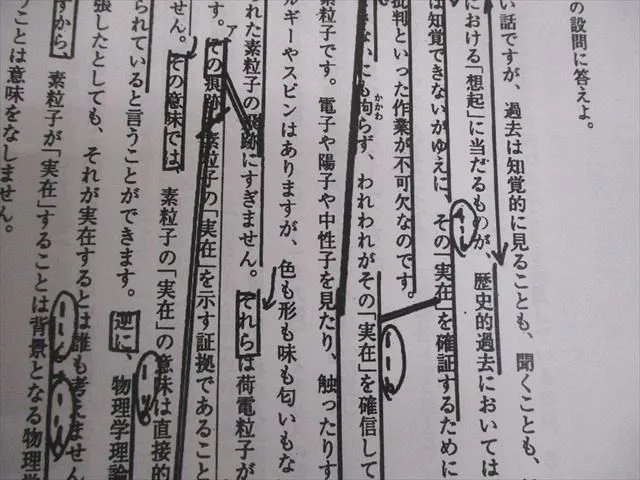 の設問に答えよ。
い話ですが、過去は知覚的に見ることも、聞くことも、
における「想起」に当たるものが、歴史的過去においては
は知覚できないがゆえに、その「実在」を確証するために
批判といった作業が不可欠なのです。
にも拘らず、われわれがその「実在」を確信して
かかわ
素粒子です。電子や陽子や中性子を見たり、触ったりす
ルギーやスピンはありますが、色も形も味も匂いもな
られた素粒子の痕跡にすぎません。それらは荷電粒子が
ア
す。その痕跡が素粒子の「実在」を示す証拠であること
せん。その意味では、素粒子の「実在」の意味は直接的
られていると言うことができます。逆に、物理学理論
張したとしても、それが実在するとは誰も考えません
すから、素粒子が「実在」することは背景となる物理学
うことは意味をなしません。